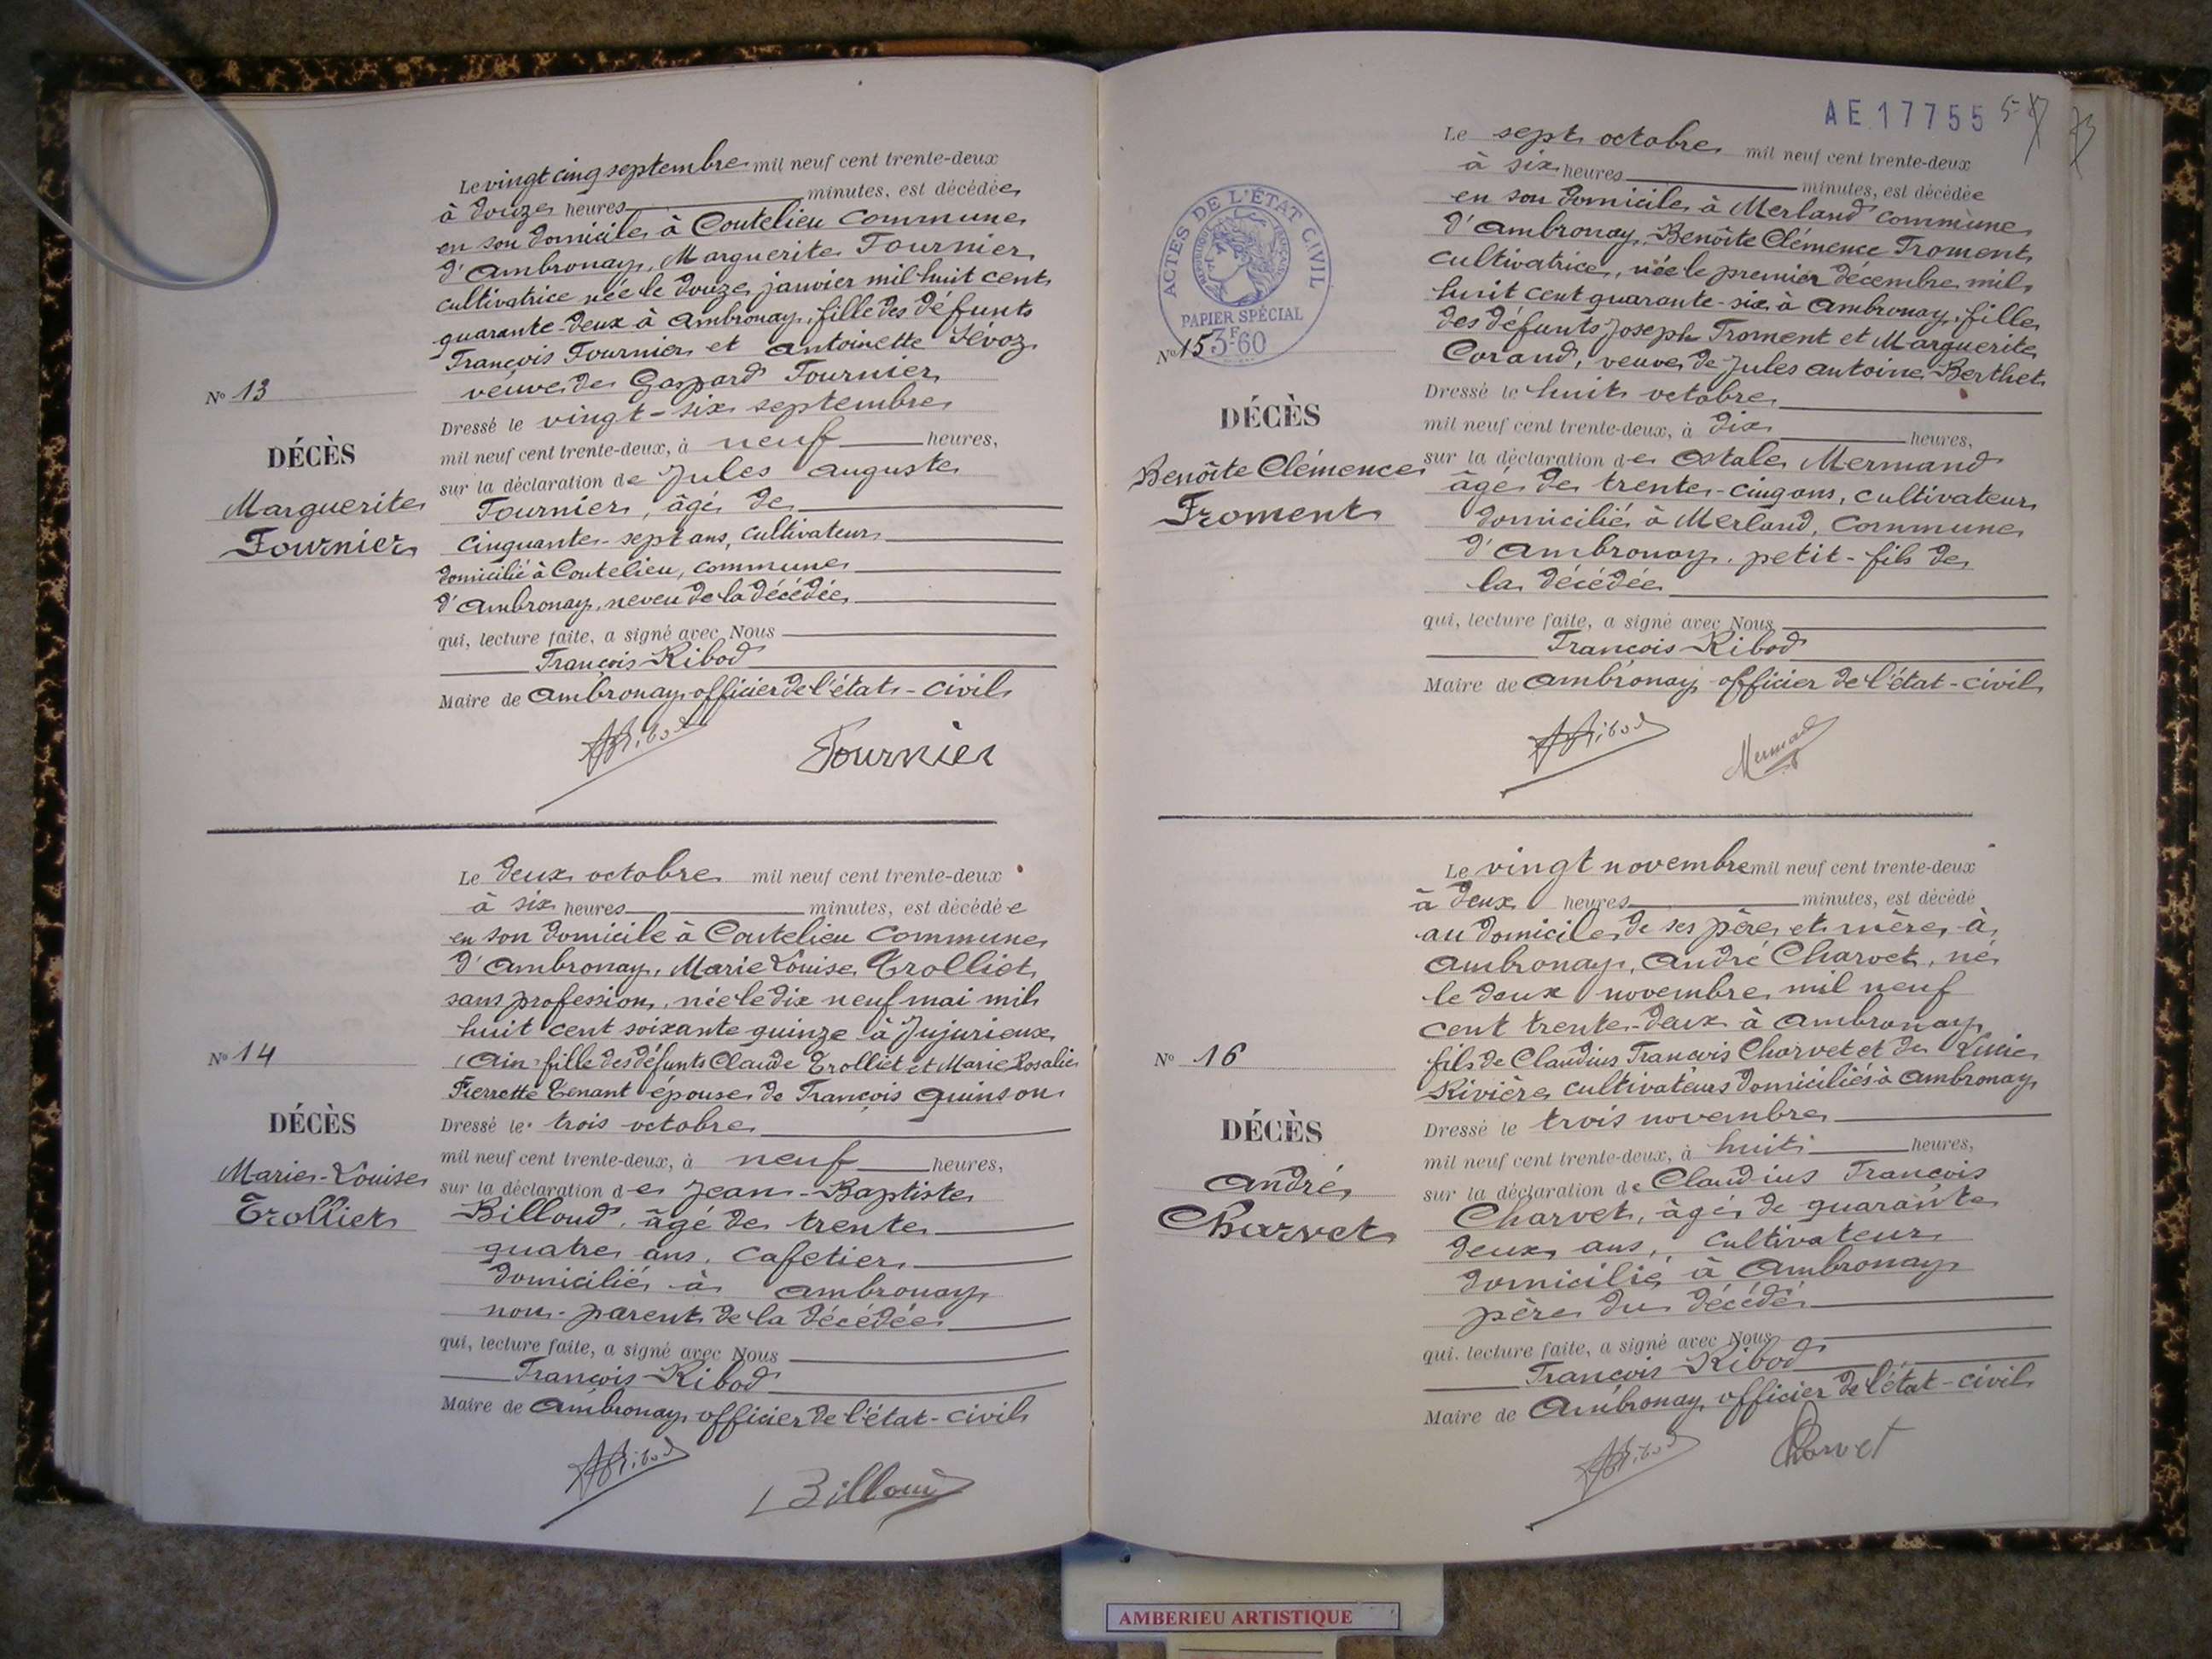 Le vingt cinq septembre mil neuf cent trente-deux
à douze heures minutes, est décédée
en son domicile à Coutelieu commune
d'Ambronay, Marguerite Fournier
cultivatrice née le douze janvier mil huit cent
quarante-deux à Ambronay, fille des défunts
François Fournier et Antoinette Sévoz
veuve de Gaspard Fournier
N° 13
DÉCÈS
Marguerite
Fournier
Dressé le vingt-six septembre
mil neuf cent trente-deux, à neuf heures,
sur la déclaration de Jules Auguste
Fournier, âgé de
cinquante-sept ans, cultivateur
domicilié à Coutelieu, commune
d'Ambronay, neveu de la décédée
qui, lecture faite, a signé avec Nous
François Ribod
Maire de Ambronay officier de l'état-civil
Ribod
Fournier
Le deux octobre mil neuf cent trente-deux
à six heures minutes, est décédée
en son domicile à Coutelieu commune
d'Ambronay, Marie Louise Trolliet
sans profession, née le dix neuf mai mil
huit cent soixante quinze à Jujurieux
(Ain) fille des défunts Claude Trolliet et Marie Rosalie
Pierrette Tenant épouse de François Quinson
N° 14
DÉCÈS
Marie-Louise
Trolliet
Dressé le trois octobre
mil neuf cent trente-deux, à neuf heures,
sur la déclaration de Jean-Baptiste
Billoud, âgé de trente
quatre ans, cafetier
domicilié à Ambronay
non-parent de la décédée
qui, lecture faite, a signé avec Nous
François Ribod
Maire de Ambronay officier de l'état-civil
Ribod
Billoud
AE 17755
Le sept octobre mil neuf cent trente-deux
à six heures minutes, est décédée
en son domicile à Merland commune
d'Ambronay, Benôite Clémence Froment
cultivatrice, née le premier décembre mil
huit cent quarante-six à Ambronay, fille
des défunts Joseph Froment et Marguerite
Corand, veuve de Jules Antoine Berthet
ACTES DE L'ÉTAT CIVIL
RÉPUBLIQUE FRANÇAISE
PAPIER SPÉCIAL
3F60
N° 15
DÉCÈS
Benôite Clémence
Froment
Dressé le huit octobre
mil neuf cent trente-deux, à dix heures,
sur la déclaration de Mermand
âgé de trente-cinq ans, cultivateur
domicilié à Merland, commune
d'Ambronay, petit-fils de
la décédée
qui, lecture faite, a signé avec Nous
François Ribod
Maire de Ambronay officier de l'état-civil
Ribod
Mermand
Le vingt novembre mil neuf cent trente-deux
à deux heures minutes, est décédé
au domicile de ses père et mère, à
Ambronay, André Charvet, né
le deux novembre mil neuf
cent trente-deux à Ambronay
fils de Claudius François Charvet et de Lucie
Rivière cultivateurs domiciliés à Ambronay
N° 16
DÉCÈS
André
Charvet
Dressé le trois novembre
mil neuf cent trente-deux, à huit heures,
sur la déclaration de Claudius François
Charvet, âgé de quarante
deux ans, cultivateur
domicilié à Ambronay
père du décédé
qui, lecture faite, a signé avec Nous
François Ribod
Maire de Ambronay, officier de l'état-civil
Ribod
Charvet
AMBERIEU ARTISTIQUE